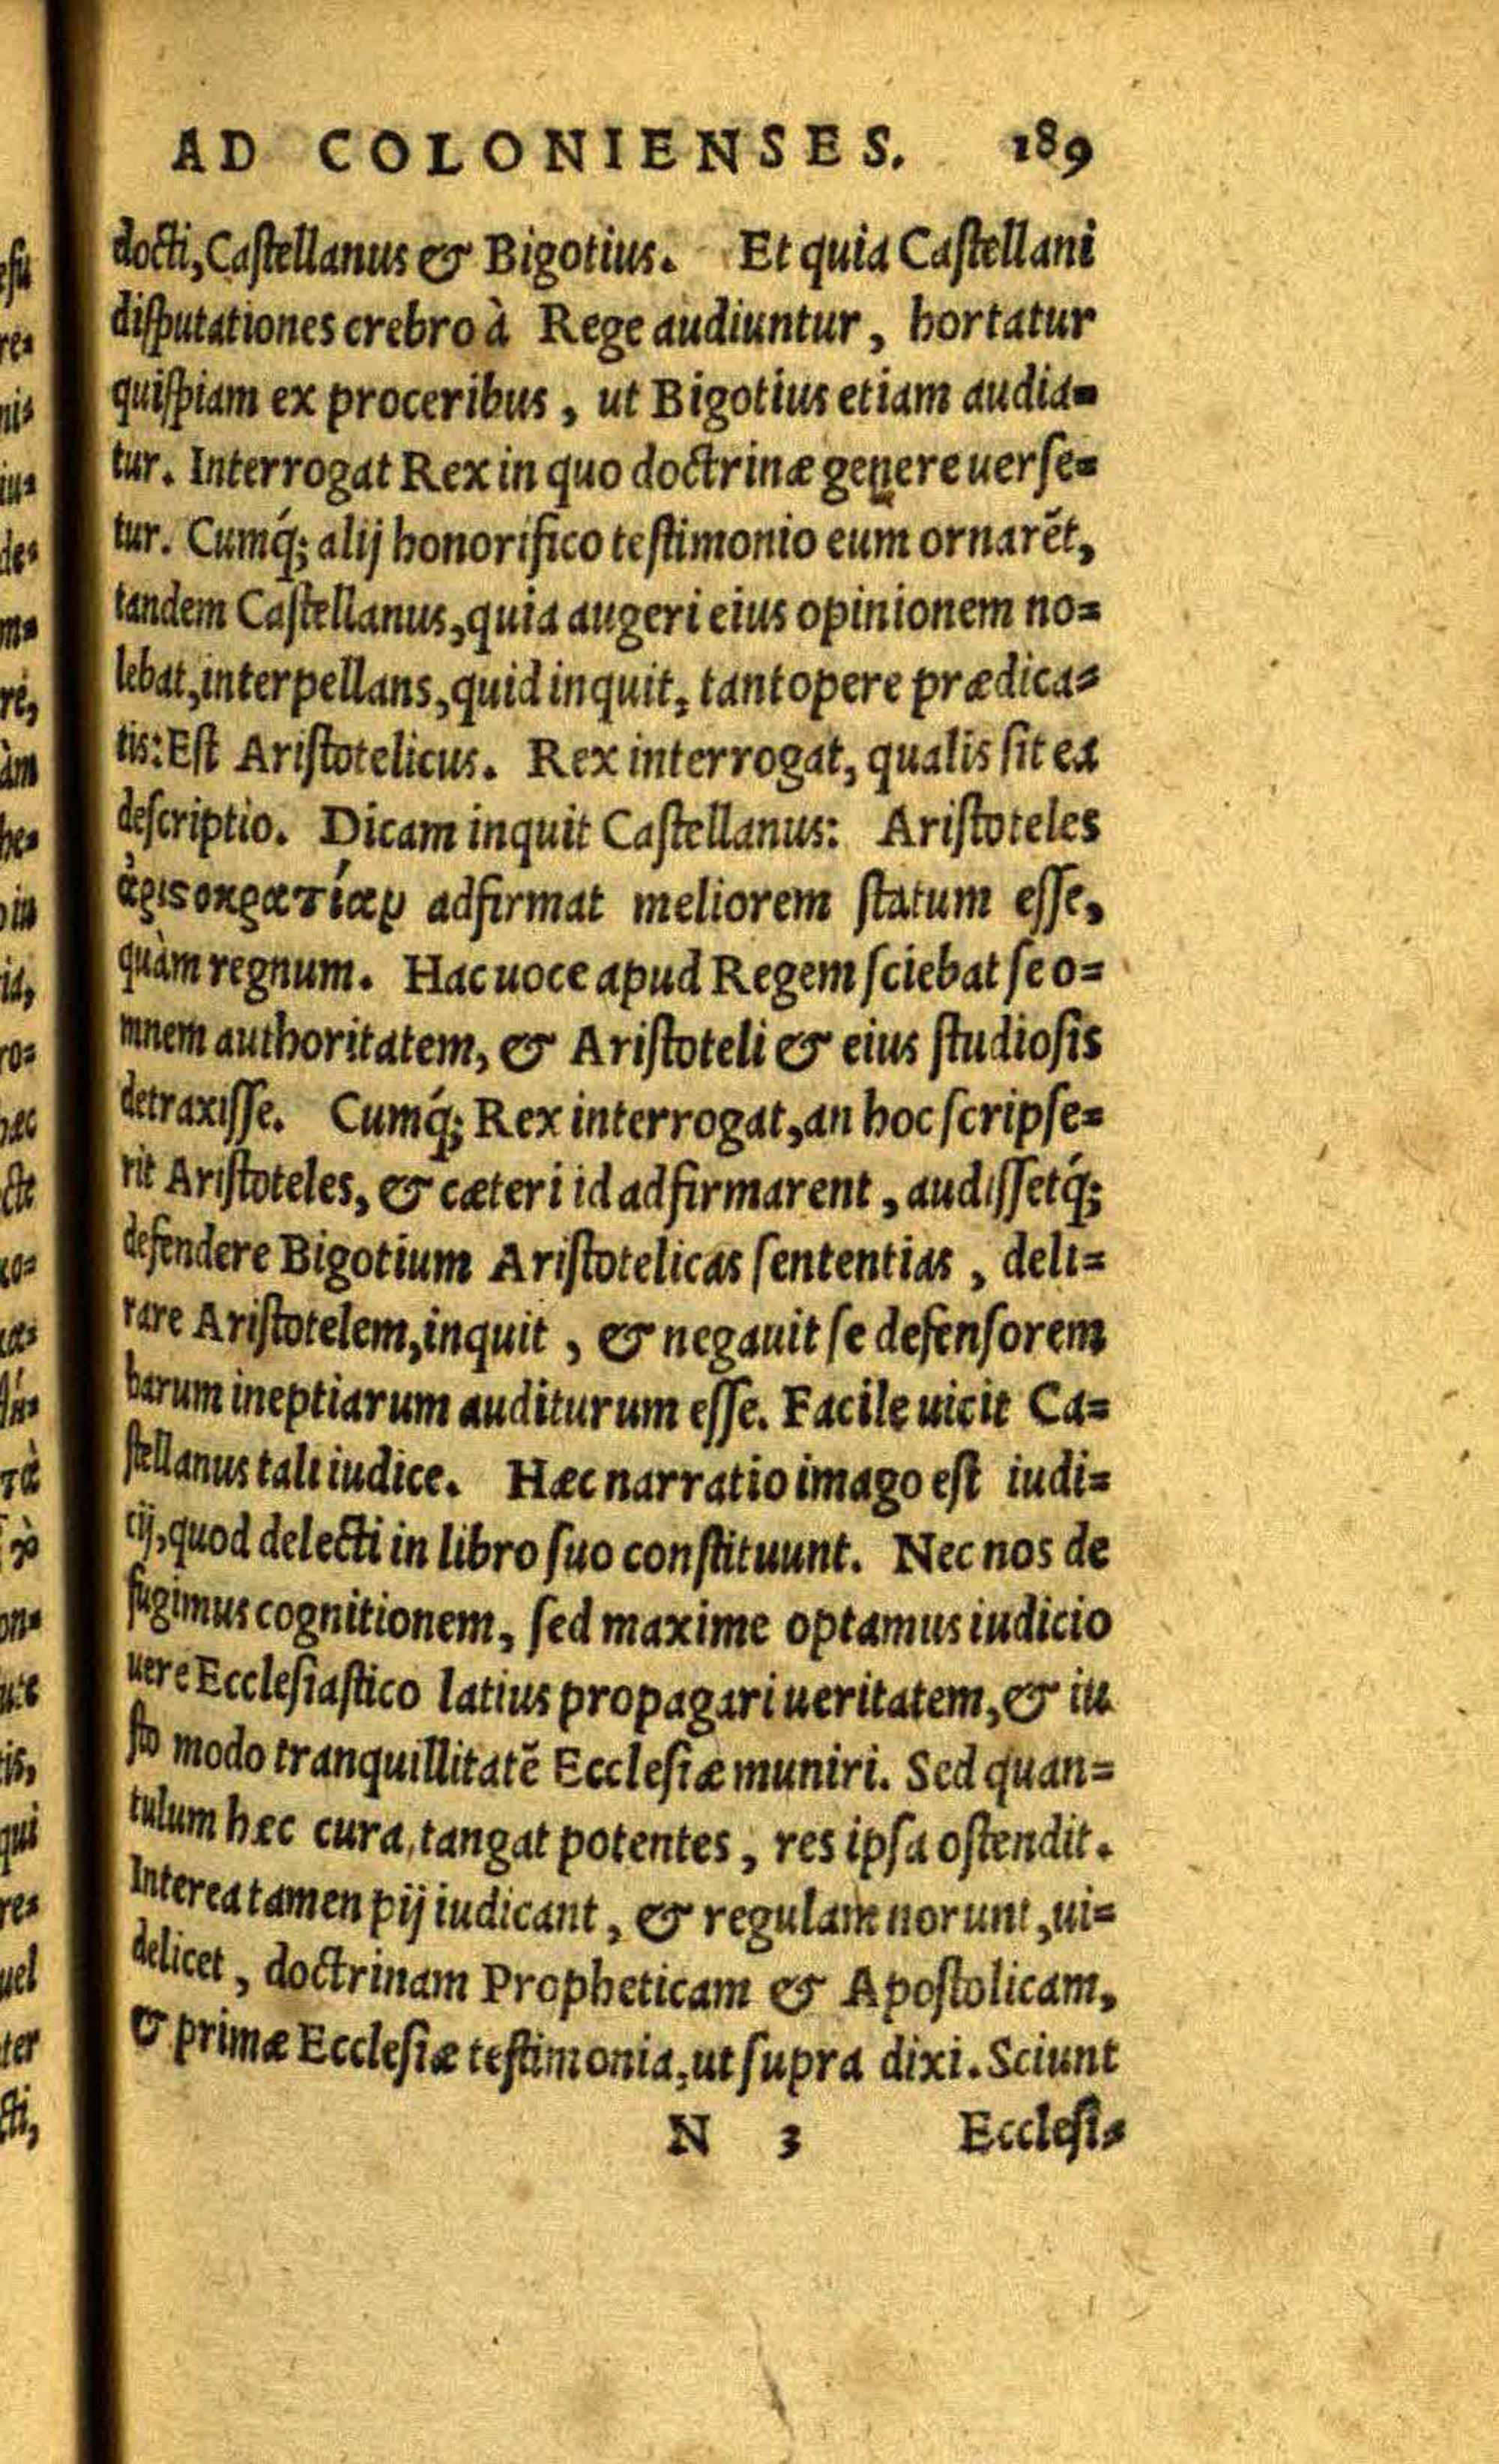 AD COLONIENSES. 189
docti, Castellanus & Bigotius. Et quia Castellani
disputationes crebro à Rege audiuntur, hortatur
quispiam ex proceribus, ut Bigotius etiam audia=
tur. Interrogat Rex in quo doctrinæ genere uerse=
tur. Cumq́; alij honorifico testimonio eum ornarēt,
tandem Castellanus, quia augeri eius opinionem no=
lebat, interpellans, quid inquit, tantopere prædica=
tis: Est Aristotelicus. Rex interrogat, qualis sit ea
descriptio. Dicam inquit Castellanus: Aristoteles
ἀριστοκρατίαν adfirmat meliorem statum esse,
quàm regnum. Hac uoce apud Regem sciebat se o=
mnem authoritatem, & Aristoteli & eius studiosis
detraxisse. Cumq́; Rex interrogat, an hoc scripse=
rit Aristoteles, & cæteri id adfirmarent, audissetq́;
defendere Bigotium Aristotelicas sententias, deli=
rare Aristotelem, inquit, & negauit se defensorem
harum ineptiarum auditurum esse. Facile uicit Ca=
stellanus tali iudice. Hæc narratio imago est iudi=
cij, quod delecti in libro suo constituunt. Nec nos de
fugimus cognitionem, sed maxime optamus iudicio
uere Ecclesiastico latius propagari ueritatem, & iu
sto modo tranquillitatē Ecclesiæ muniri. Sed quan=
tulum hæc cura, tangat potentes, res ipsa ostendit.
Interea tamen pij iudicant, & regulam norunt, ui=
delicet, doctrinam Propheticam & Apostolicam,
& primæ Ecclesiæ testimonia, ut supra dixi. Sciunt
N 3 Ecclesi=